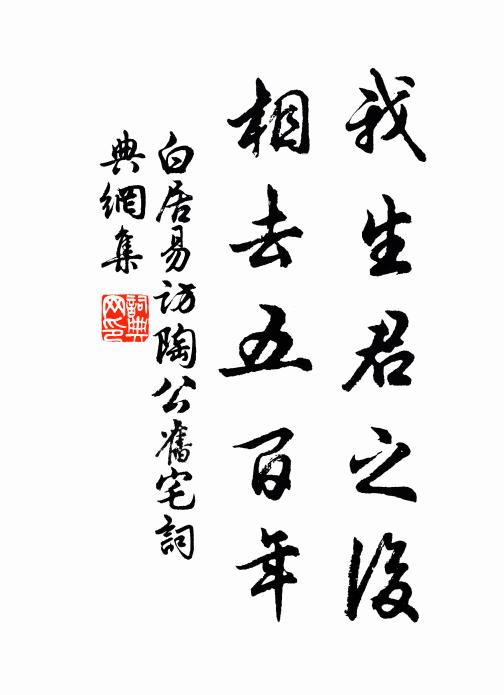 我生君之後
相去五百年
白居易訪陶公舊宅詞
典網集
詞典網印